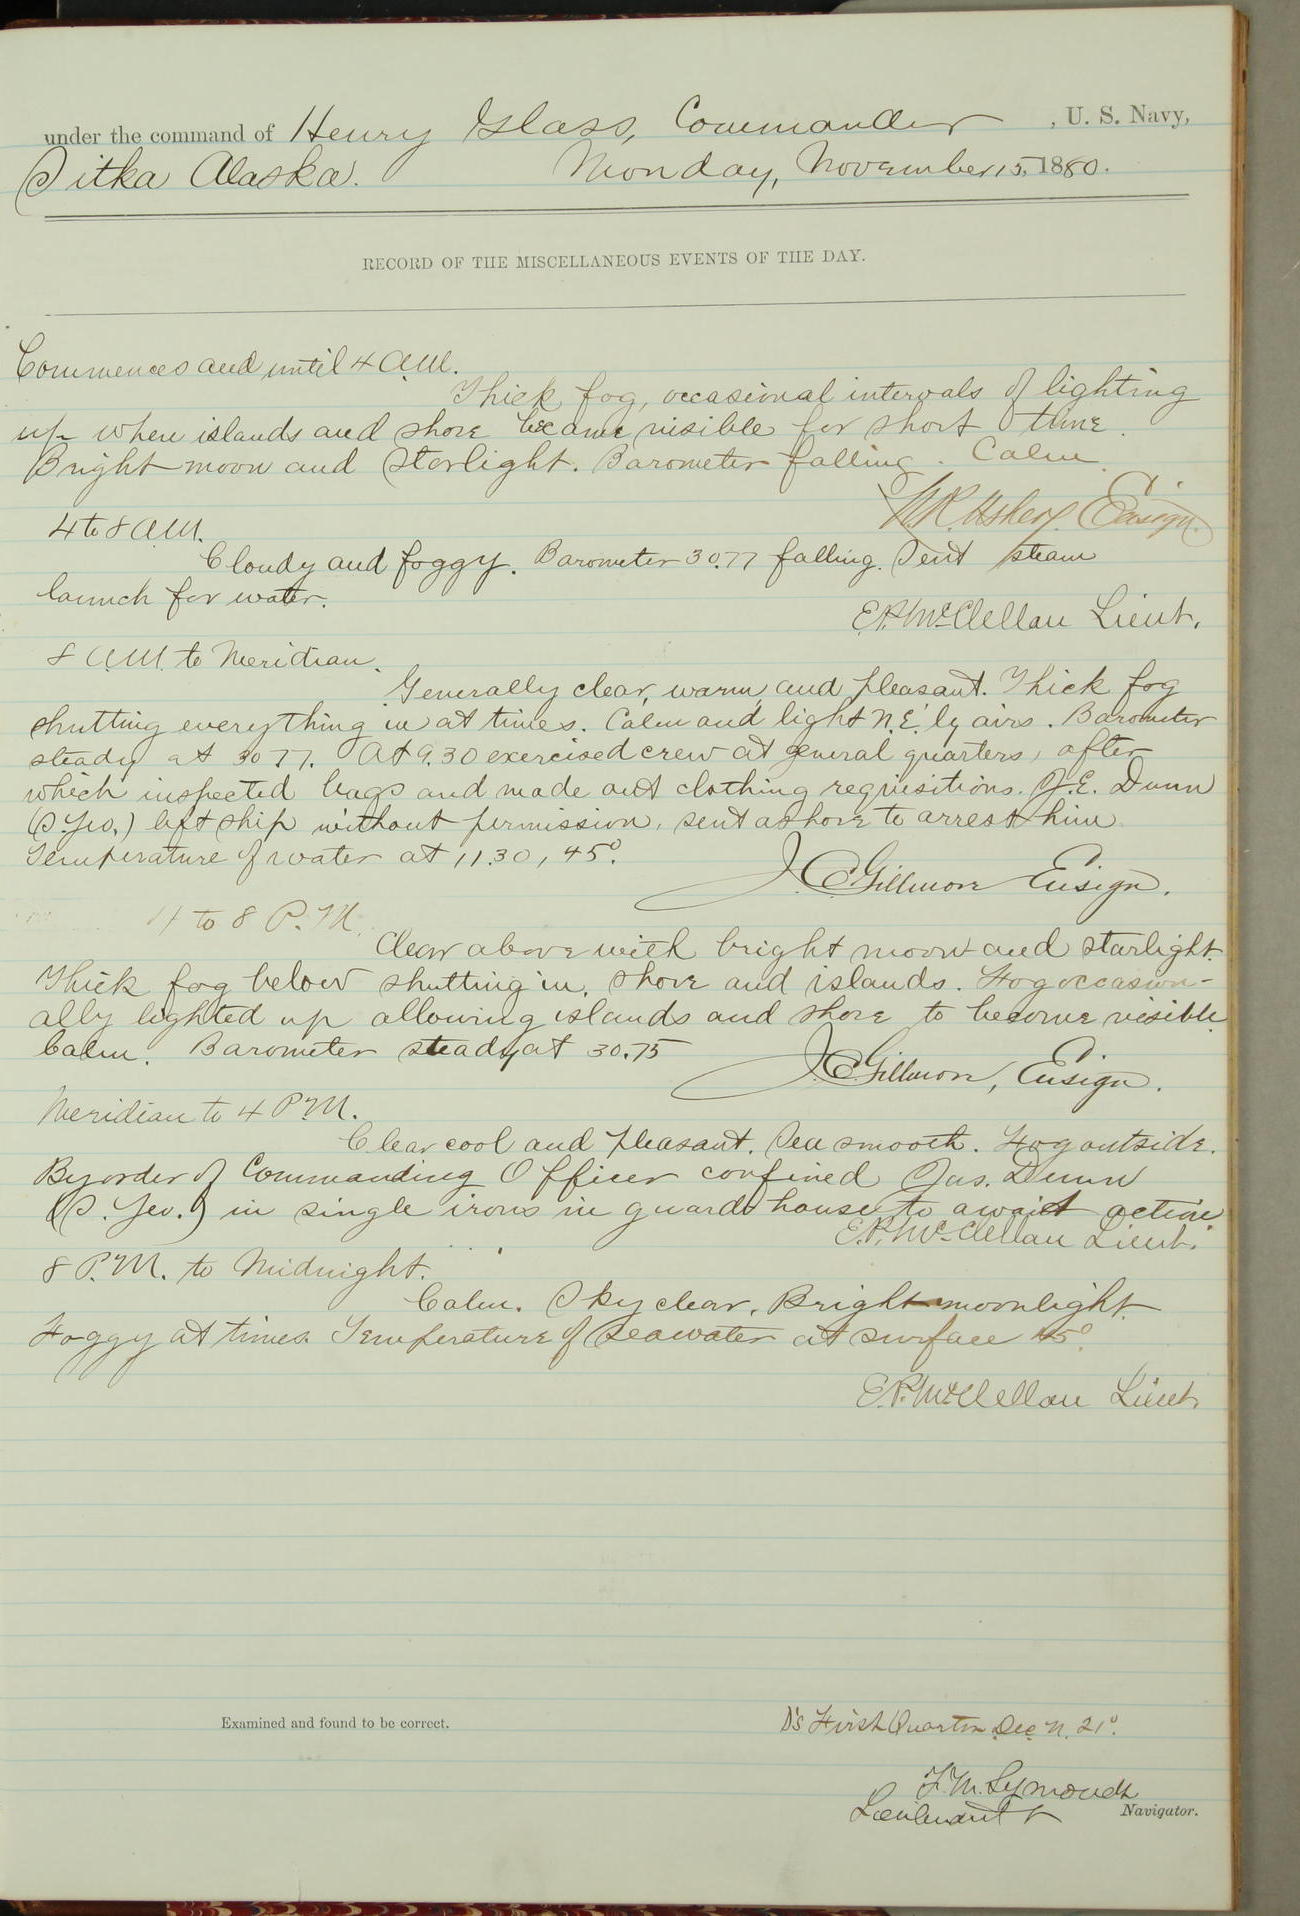 under the command of Henry Glass, Commander, U. S. Navy,
Sitka Alaska. Monday, November 15, 1880.
RECORD OF THE MISCELLANEOUS EVENTS OF THE DAY.
Commences and until 4 A.M.
Thick fog, occasional intervals of lighting
up when islands and shore became visible for short time.
Bright moon and starlight. Barometer falling. Calm.
N.R. Usher, Ensign.
4 to 8 A.M.
Cloudy and foggy. Barometer 30.77 falling. Sent steam
launch for water.
E.P. McClellan Lieut.
8 A.M. to Meridian.
Generally clear, warm and pleasant. Thick fog
shutting everything in at times. Calm and light N.E.'ly airs. Barometer
steady at 30.77. At 9.30 exercised crew at general quarters, after
which inspected bags and made out clothing requisitions. J.E. Dunn
(S. Yeo.) left ship without permission, sent ashore to arrest him.
Temperature of water at 11.30, 45°.
J.C. Gillmore Ensign.
4 to 8 P.M.
Clear above with bright moon and starlight.
Thick fog below shutting in, shore and islands. Fog occasion-
ally lighted up allowing islands and shore to become visible.
Calm. Barometer steady at 30.75
J.C. Gillmore, Ensign.
Meridian to 4 P.M.
Clear cool and pleasant. Sea smooth. Fog outside.
By order of Commanding Officer confined Jas. Dunn
(S. Yeo.) in single irons in guard house to await action.
E.P. McClellan Lieut.
8 P.M. to Midnight.
Calm. Sky clear. Bright moonlight.
Foggy at times. Temperature of sea water at surface 45°.
E.P. McClellan Lieut.
Examined and found to be correct.
D's First Quarter Dec. N. 21°.
F.M. Symonds
Lieutenant & Navigator.